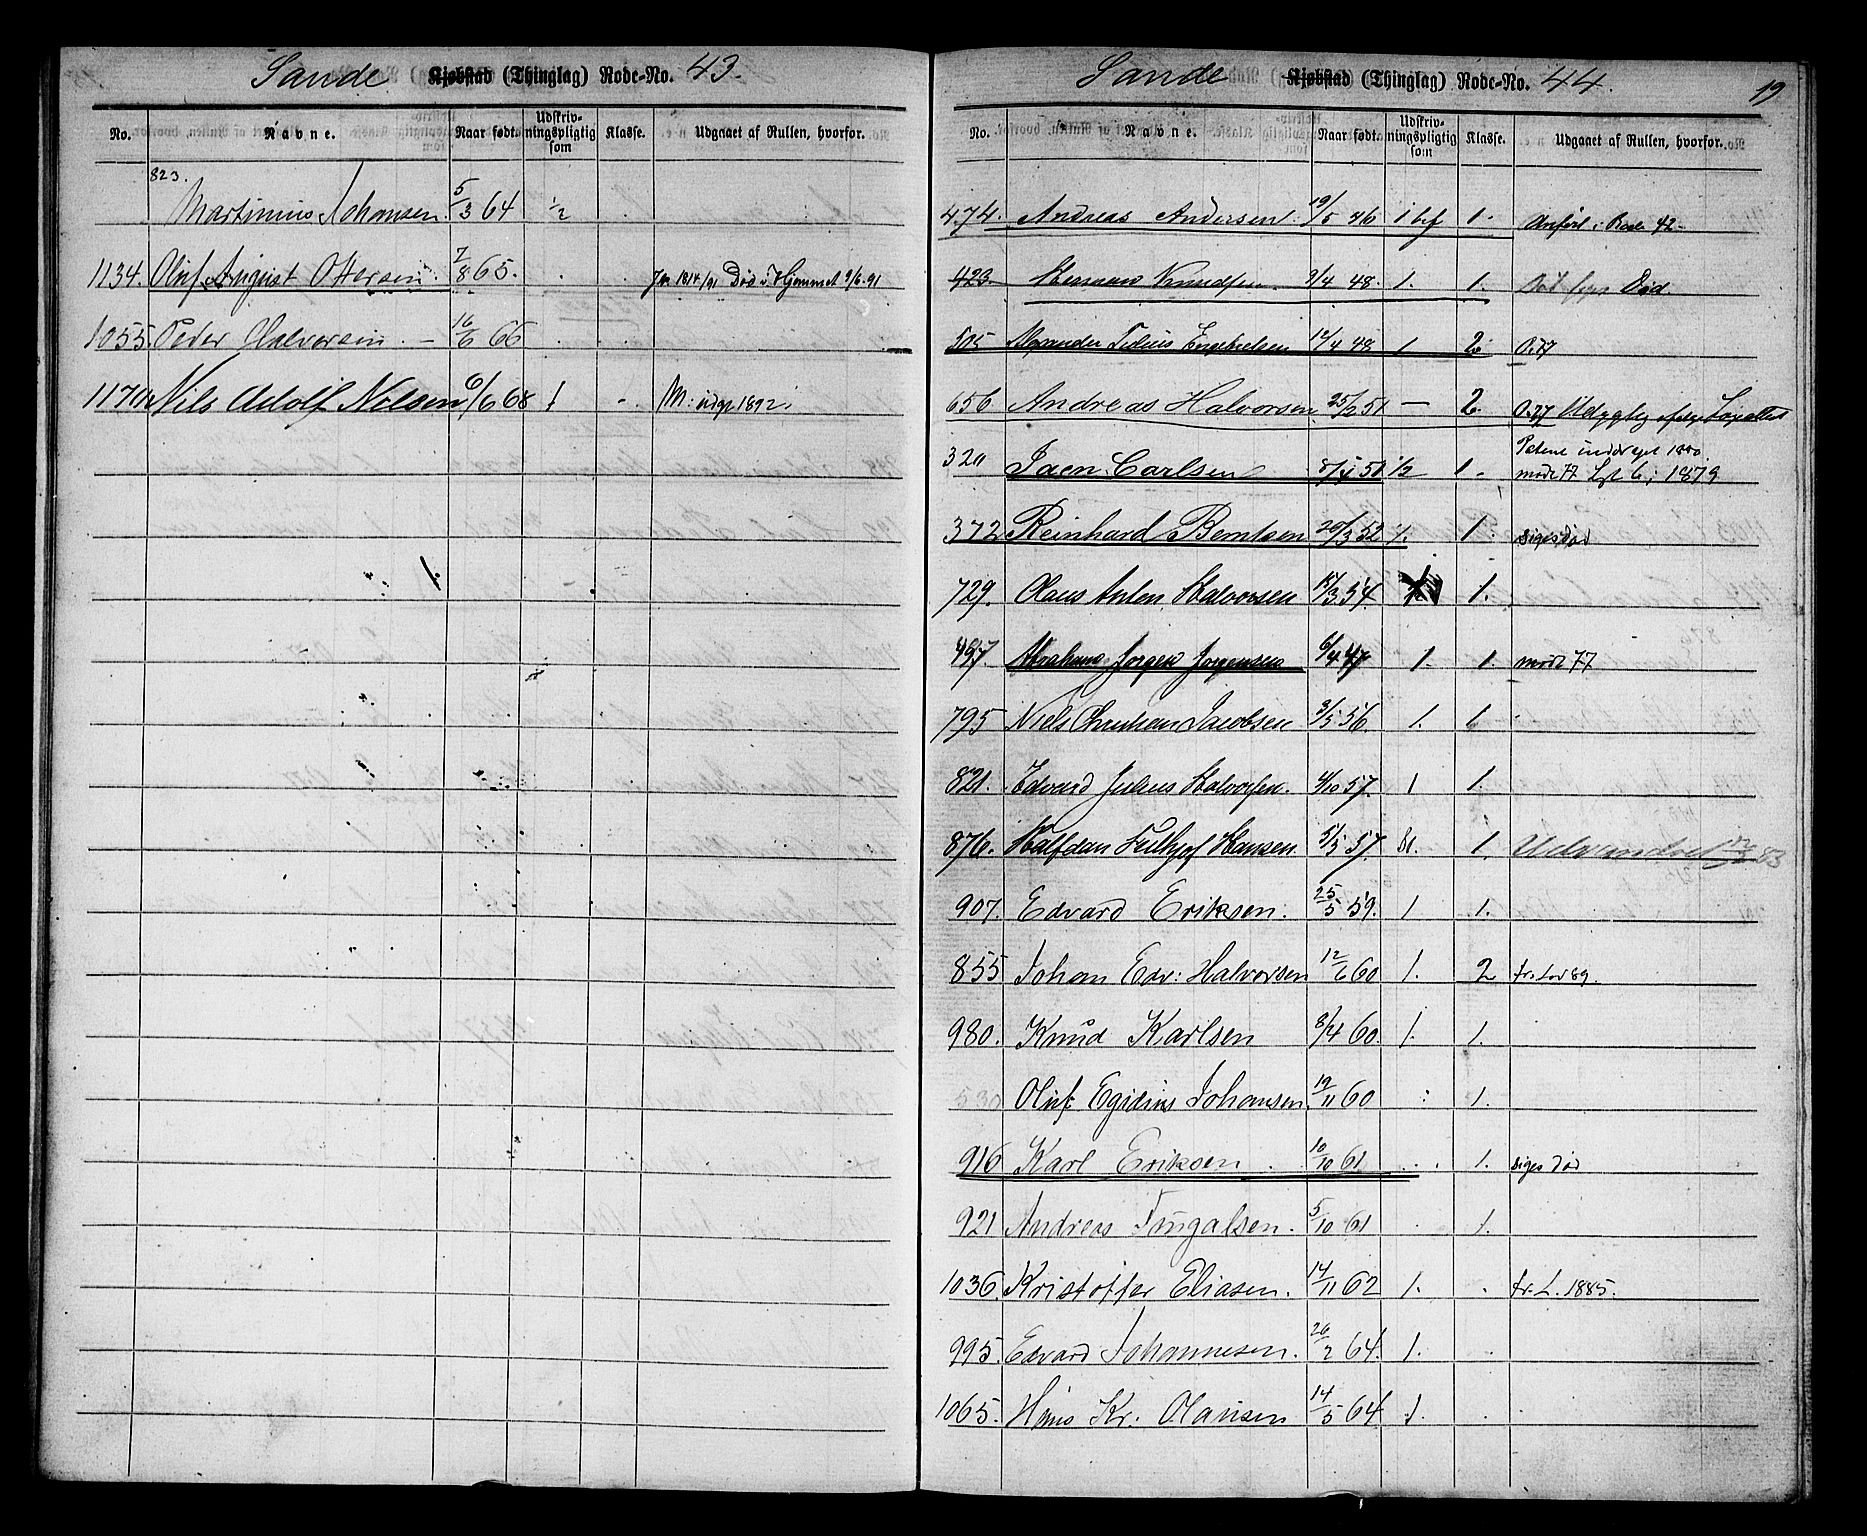 Sande Kjøbstad (Thinglag) Rode-No. 43.
No. Navne. Naar født. Udskrivningspligtig som Klasse. Udgaaet af Rullen, hvorfor.
823.
Martinius Johansen. 5/3 64 1/2
1134. Oluf August Ottersen. 7/8 65. 1814/91 Død i Hjemmet 9/6 91
1055. Peder Halvorsen. – 16/6 66
1170 Nils Adolf Nilsen 6/6 68 1 M: udg. 1892.
Sande Kjøbstad (Thinglag) Rode-No. 44. 19
No. Navne. Naar født. Udskrivningspligtig som Klasse. Udgaaet af Rullen, hvorfor.
474. Andreas Andersen. 19/5 46 1 bef 1. Anført i Rode 42
423. Herman Knudsen 3/4 48. 1. 1. Død.
505 Alexander Julius Engebretsen 12/4 48 1 2. O. 77
656 Andreas Halvorsen 25/2 51 – 2. O. 77
Patent inddraget 1880.
320 Jaen Carlsen 51 1/2 1. mødt 77. 1879
372 Reinhard Berntsen 20/3 52 1. 1. siges død
729. Olaus Anton Halvorsen 3 54 1.
497. Abraham Jørgen Jørgensen 6/4 47 1. 1. mødt 77
795 Niels Christian Jacobsen 3/5 56. 1. 1
821. Edvard Julius Halvorsen. 4/10 57. 1 1.
876. Halfdan Fridtjof Hansen 5/5 57. 1. Udvandret 83
907. Edvard Eriksen. 25/5 59. 1 1.
855 Johan Edv: Halvorsen 12/6 60 1. 2 fr. Lov 89.
980. Knud Karlsen 8/4 60. 1. 1.
530 Oluf Egidius Johansen. 19/11 60 1.
916 Karl Eriksen. 10/10 61 1. siges død
921 Andreas Fingalsen. 5/10 61 1.
1036. Kristoffer Eliasen. 14/11 62 1. fr. L. 1885.
995. Edvard Johannesen. 26/2 64. 1.
1065. Hans Kr. Olausen 14/5 64 1.